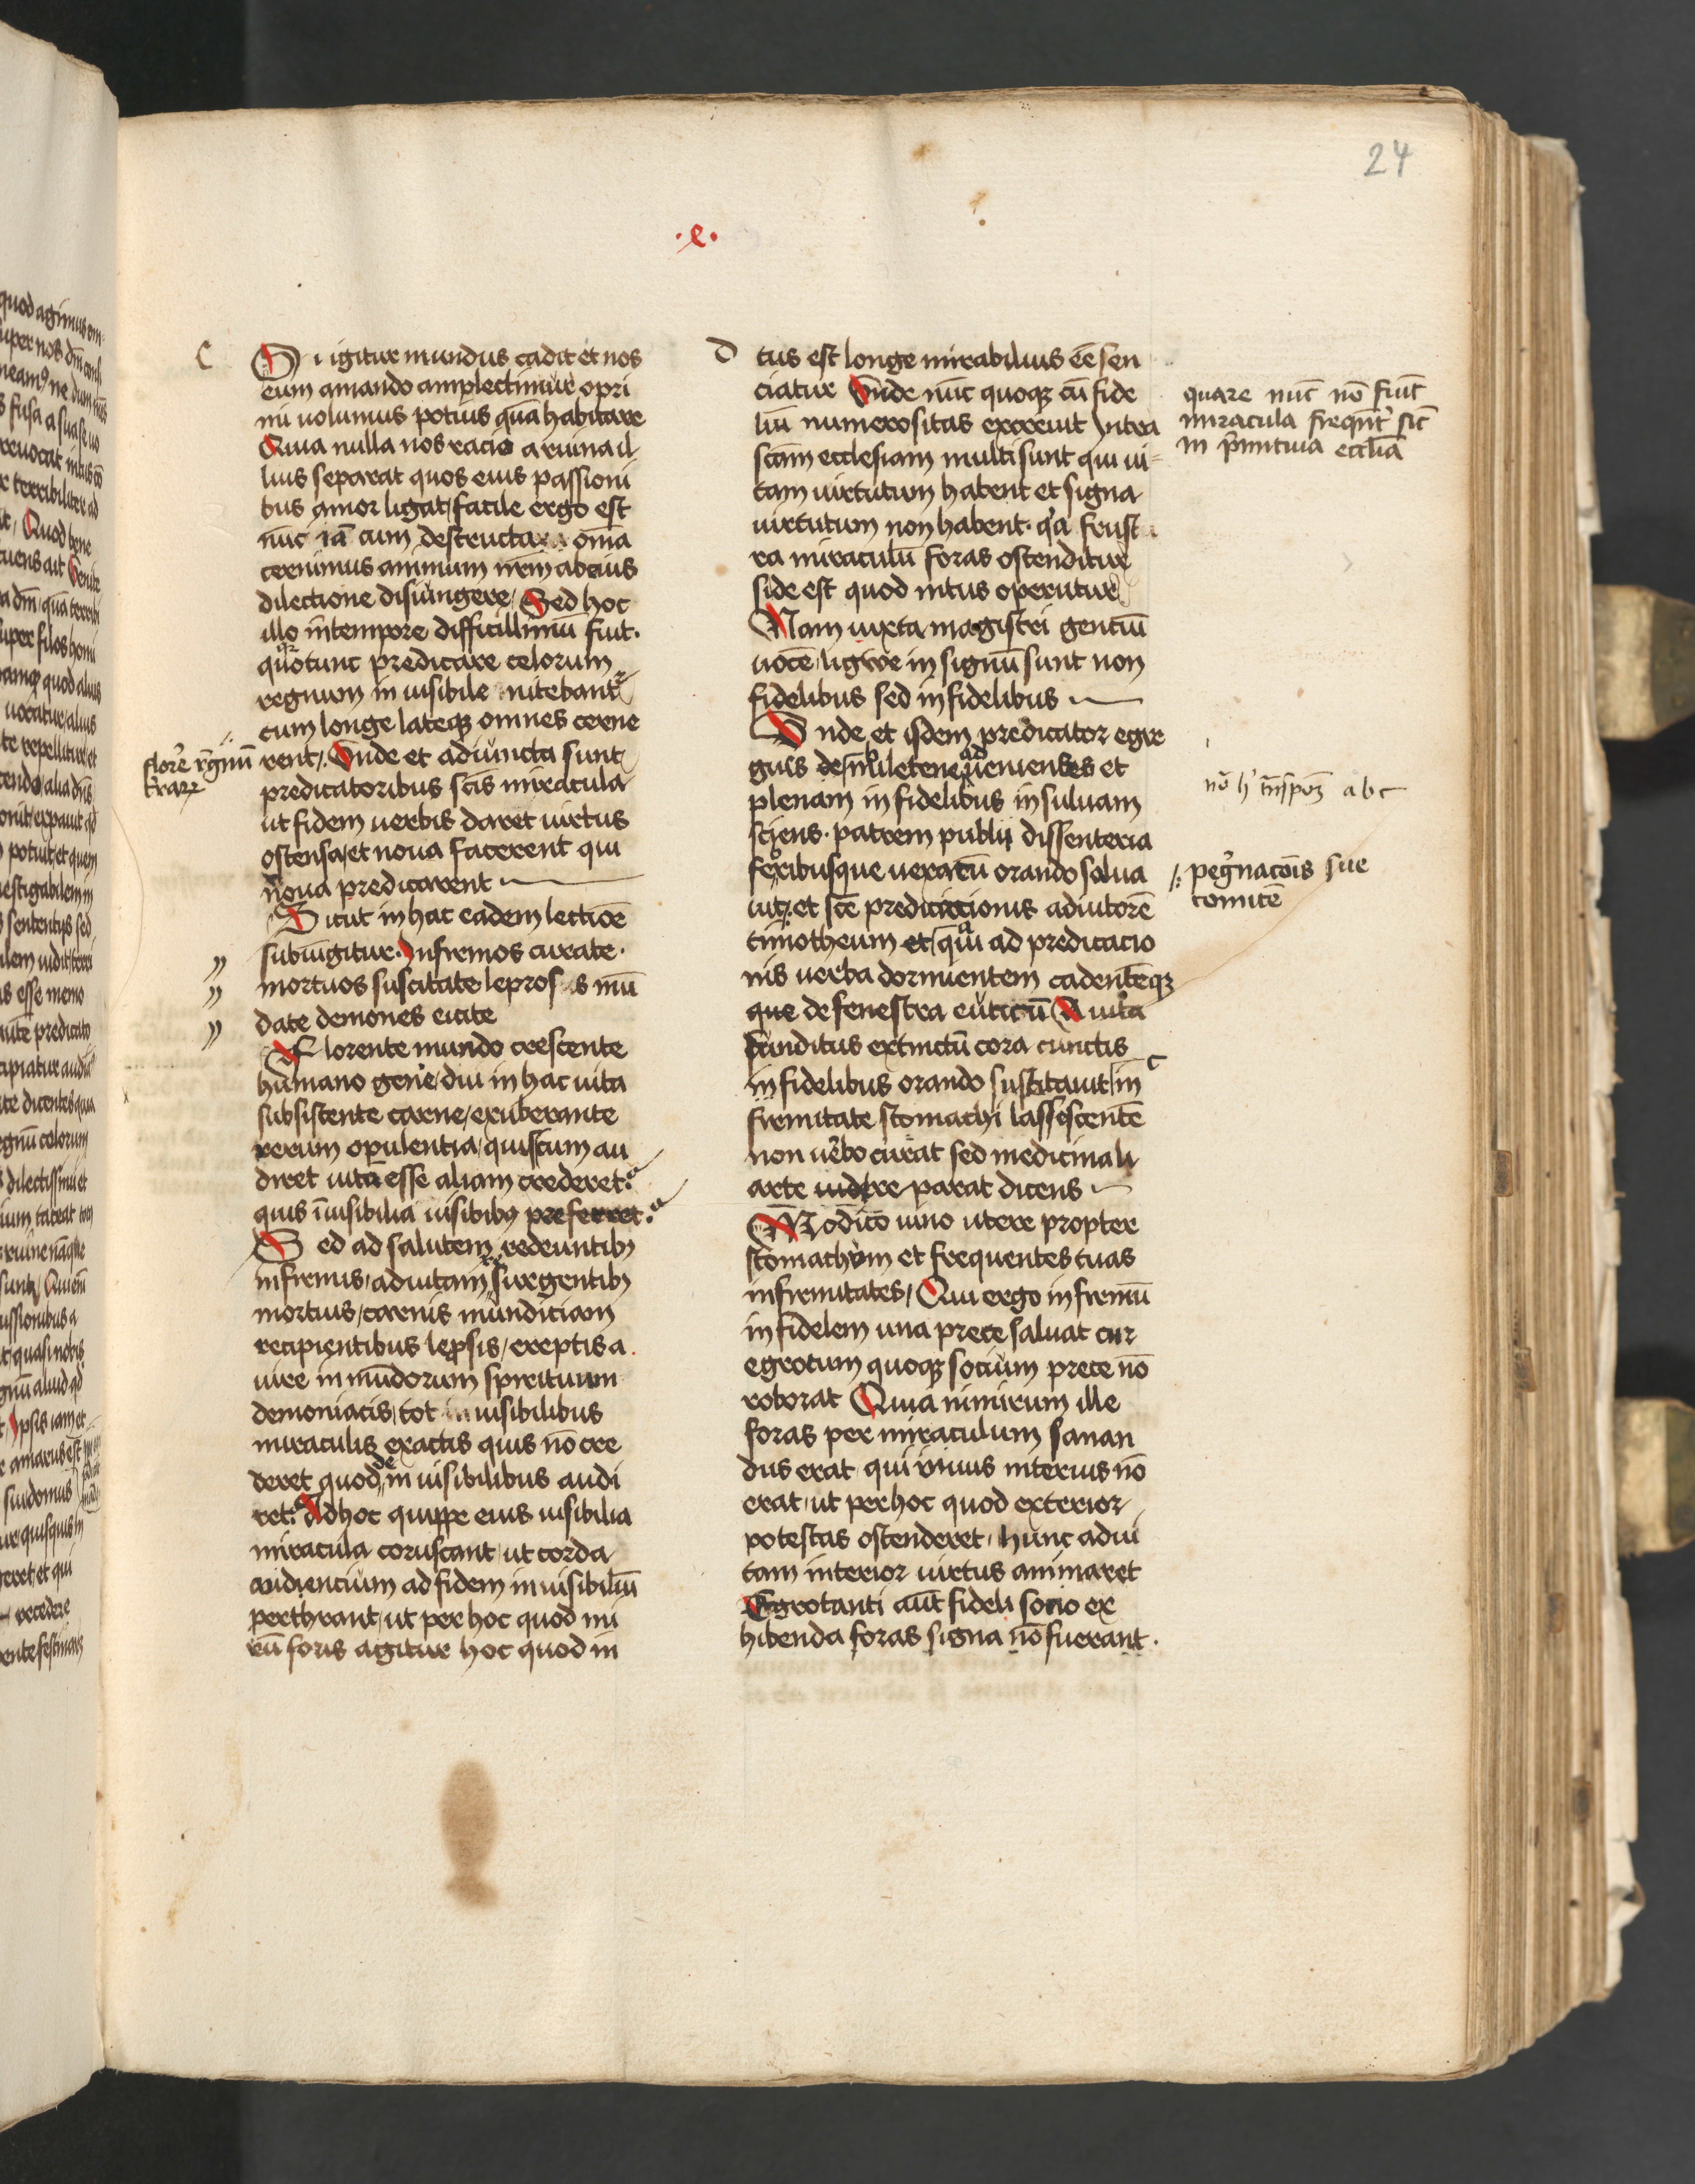 24
.e.
C
Si igitur mundus cadit et nos
eum amando amplectimur opri
mi uolumus potius quā habitare
Quia nulla nos racio a ruina il
lius separat quos eius passioni
bus amor ligat facile ergo est
nūc iā cum destructa om̄a
cernimus animum nr̄m ab eius
dilectione disiungere Sed hoc
illo in tempore difficillimū fuit.
quo tunc predicare celorum
regnum in uisibile nitebant
cum longe lateq; omnes cerne
rent Vnde et adiuncta sunt
predicatoribus sc̄is miracula
ut fidem uerbis daret uirtus
ostensa et noua facerent qui
noua predicarent
Sicut in hac eadem lectiōe
subiūgitur. Infirmos curate.
mortuos suscitate lepros s mū
date demones eicite
Florente mundo crescente
humano gen̄e diu in hac uita
subsistente carne exuberante
rerum opulentia quis cum au
diret uitā esse aliam crederet
quis īuisibilia uisibilib; preferret.
Sed ad salutem redeuntib;
infirmis ad uitam surgentib;
mortuis carnis mundiciam
recipientibus lep̄sis ereptis a
iure in mūdorum spirituum
demoniacis tot uisibilibus
miraculis exactis quis nō cre
deret quod de in uisibilibus audi
ret Ad hoc quippe eius uisibilia
miracula coruscant ut corda
audiencium ad fidem in uisibiliū
perthrant ut per hoc quod mi
rū foris agitur hoc quod in
flore r̄gnū
D
tus est longe mirabilius eē sen
ciatur Vnde nūc quoq; cū fide
liū numerositas excreuit Intra
scām ecclesiam multi sunt qui ui
tam uirtutum habent et signa
uirtutum non habent. qa frust
ra miraculū foras ostenditur
si de est quod intus operatur
Nam iuxta magistri genciū
uocē ligwe in signū sunt non
fidelibus sed infidelibus
Vnde et isdem predicator egre
gius de mileten ad uenientes et
plenam in fidelibus insulam
sciens. patrem publij dissenteria
febribusque uexatū orando salua
uit. et sc̄e predicacionis adiutorē
timotheum et qui ad predicacio
nis uerba dormientem cadenteq;
que de fenestra euticū A uita
funditus extinctū cora cunctis
infidelibus orando suscitauit in
firmitate stomachi lassescentē
non uerbo curat sed medicinali
arte uidere parat dicens
Modico uino utere propter
stomachum et frequentes tuas
infirmitates Qui ergo infirmū
infidelem una prece saluat cur
egrotum quoq; socium prece nō
roborat Quia nimirum ille
foras per miraculum sanan
dus erat qui uiuus interius nō
erat ut per hoc quod exterior
potestas ostenderet hunc ad ui
tam interior uirtus animaret
Egrotanti aūt fideli socio ex
hibenda foras signa nō fuerant.
quare nūc nō fiūt
miracula freqn̄t sic̄
in p̄mitiua ecc̄lia
a b c
peg̓nacōis sue
comitē